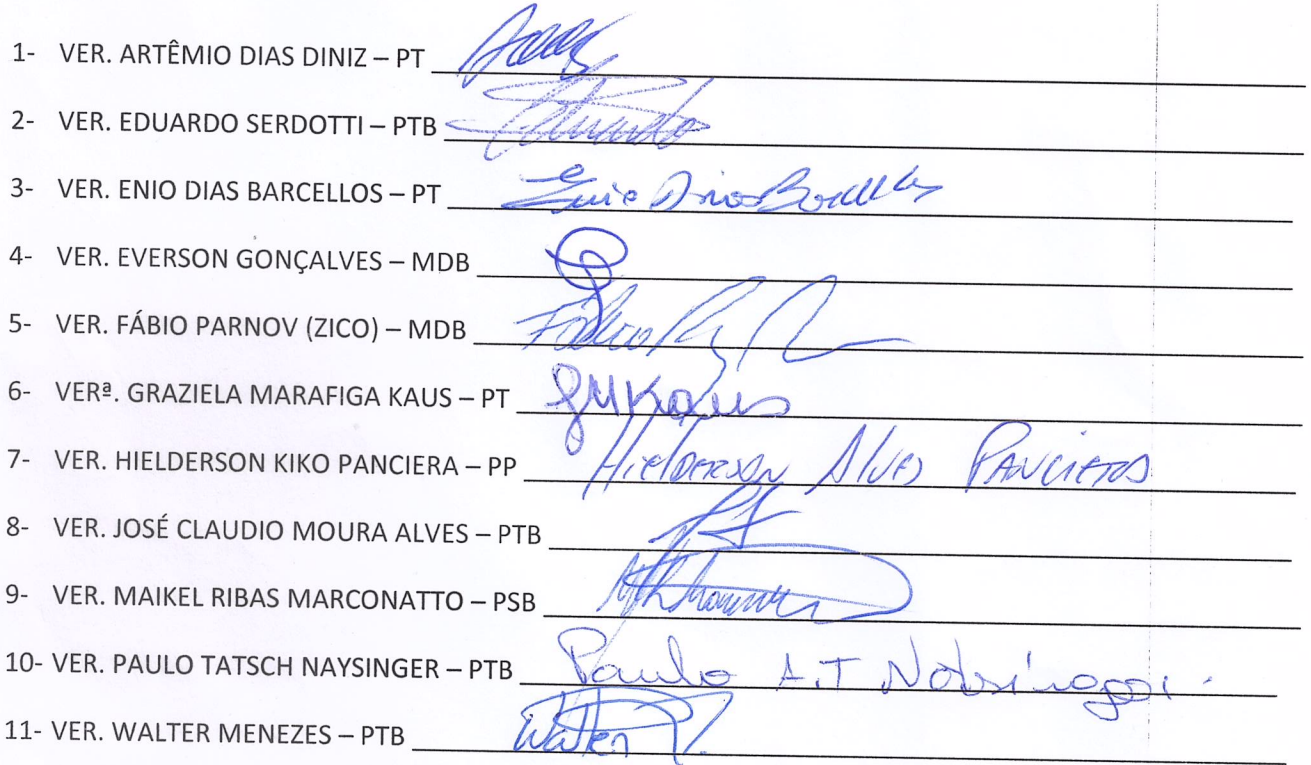 1- VER. ARTÊMIO DIAS DINIZ – PT
2- VER. EDUARDO SERDOTTI – PTB
3- VER. ENIO DIAS BARCELLOS – PT Enio Dias Barcellos
4- VER. EVERSON GONÇALVES – MDB
5- VER. FÁBIO PARNOV (ZICO) – MDB Fábio
6- VERª. GRAZIELA MARAFIGA KAUS – PT GMKaus
7- VER. HIELDERSON KIKO PANCIERA – PP Hielderson Alves Panciera
8- VER. JOSÉ CLAUDIO MOURA ALVES – PTB
9- VER. MAIKEL RIBAS MARCONATTO – PSB
10- VER. PAULO TATSCH NAYSINGER – PTB Paulo A.T
11- VER. WALTER MENEZES – PTB Walter